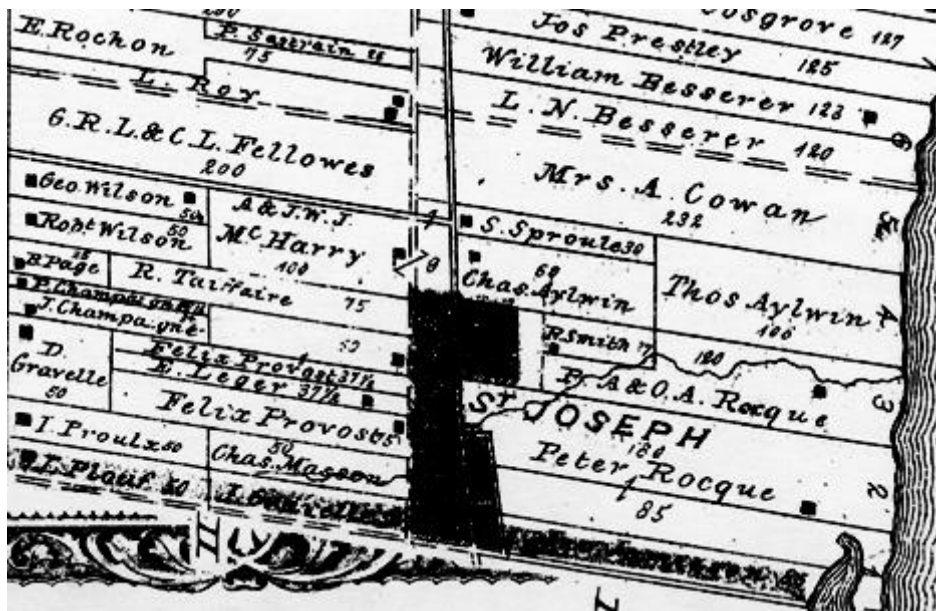 E. Rochon
75
L. Roy
G. R. L. & C. L. Fellowes
200
Geo. Wilson 50
Robt Wilson 50
A & J. W. J.
McHarry
100
B. Page
R. Taiffaire 75
P. Champaigne
J. Champaigne
50
D.
Gravelle
50
Felix Provost 37½
E. Leger 37½
Felix Provost 75
I. Proulx 50
50
Chas. Masson
L. Plouf 50
osgrove 127
Jos Prestley 125
William Besserer 123
L. N. Besserer 120
Mrs. A. Cowan
232
S. Sproule 30
60
Chas. Aylwin
Thos Aylwin
100
R. Smith
120
P. A & O. A. Rocque
St JOSEPH
180
Peter Rocque
85
5
4
3
2